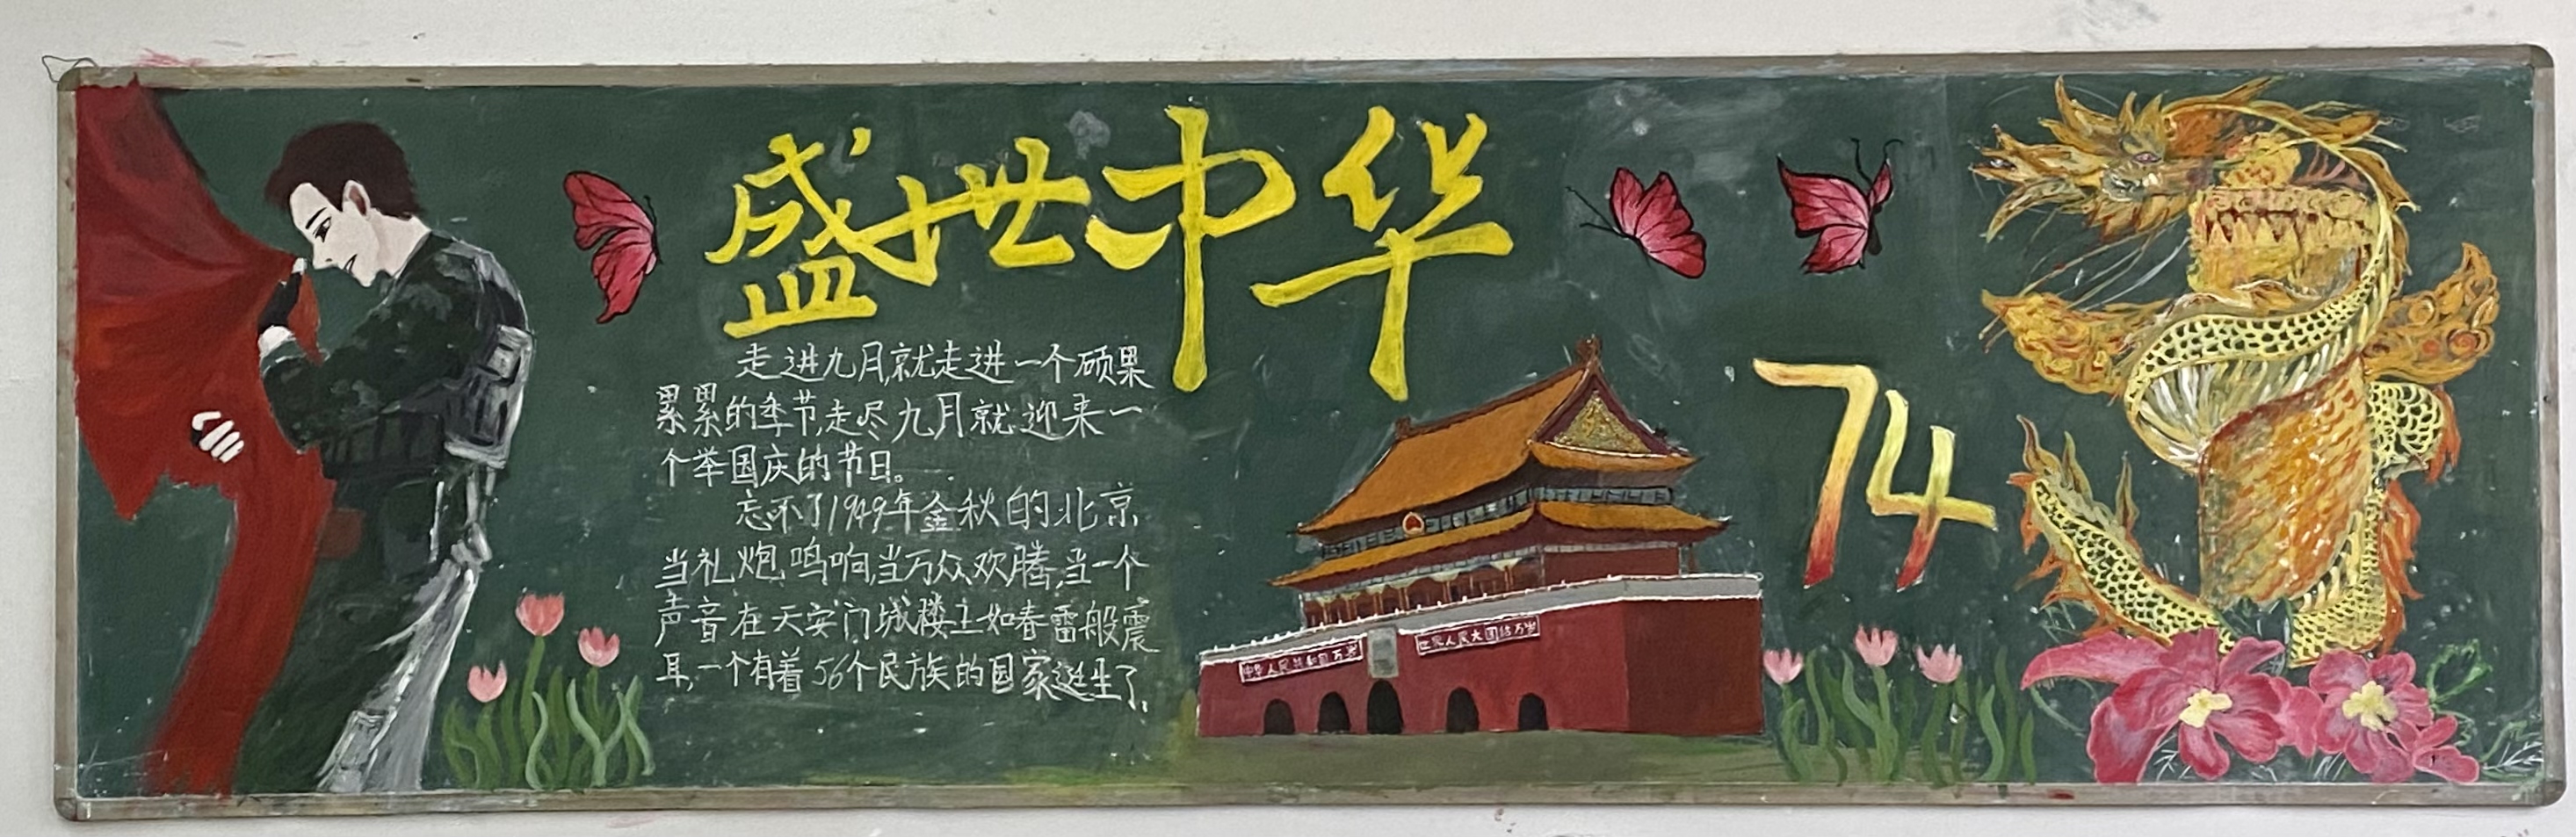 盛世中华
走进九月,就走进一个硕果
累累的季节,走尽九月就迎来一
个举国庆的节日。
忘不了1949年金秋的北京
当礼炮鸣响,当万众欢腾,当一个
声音在天安门城楼上如春雷般震
耳,一个有着56个民族的国家诞生了.
74
中华人民共和国万岁
世界人民大团结万岁